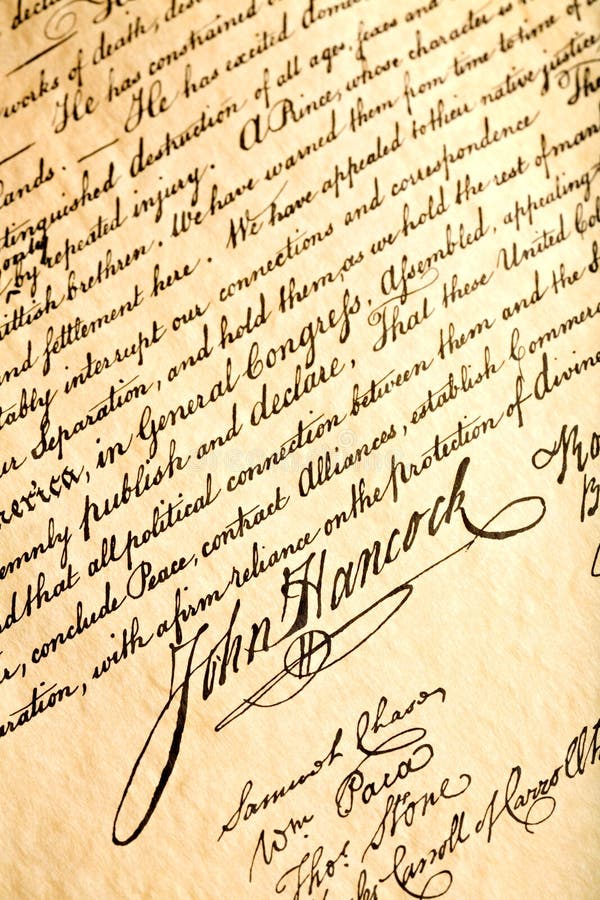 works of death, des
He has constrained
lands. — He has excited domes
tinguished destruction of all ages, sexes and
only by repeated injury. A Prince, whose character is
rittish brethren. We have warned them from time to time of
and settlement here. We have appealed to their native justice
tably interrupt our connections and correspondence The
ur Separation, and hold them, as we hold the rest of man
merica, in General Congress, Assembled, appealing
lemnly publish and declare, That these United Col
nd that all political connection between them and the S
r, conclude Peace, contract Alliances, establish Commerc
aration, with a firm reliance on the protection of divine
John Hancock
H
Samuel Chase
Wm Paca
Thos. Stone
Carroll of Carrollt